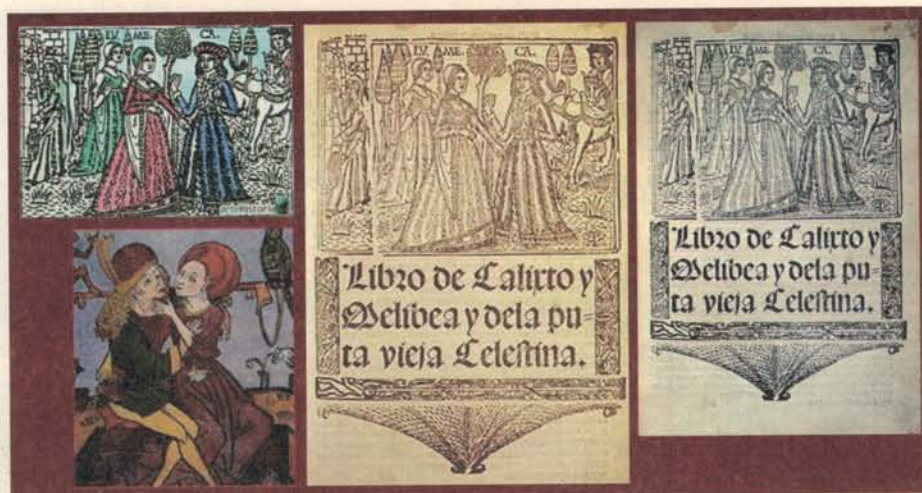 LU. ME. CA.
artehistoria
LU. ME. CA.
Libro de Calixto y
Melibea y dela pu=
ta vieja Celestina.
LU. ME. CA.
Libro de Calixto y
Melibea y dela pu=
ta vieja Celestina.